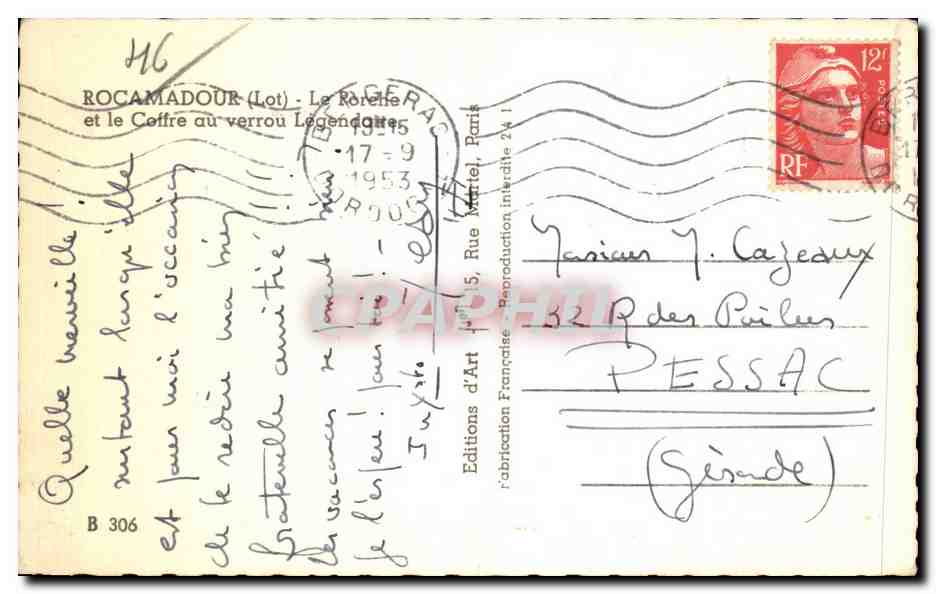 46
ROCAMADOUR (Lot) - Le Porche
et le Coffre au verrou Légendaire
BERGERAC
18-15
17-9
1953
DORDOGNE
12F
POSTES
RF
Quelle merveille !
surtout lorsqu'elle
est pour moi l'occasion
de te redire ma bien
fraternelle amitié !!
Les vacances se passent bien
je l'espère ! pour toi ! -
Editions d'Art 15, Rue Martel, Paris
Fabrication Française - Reproduction interdite 241
CPAPHIL
Monsieur M. Cazeaux
32 R des Poilus
PESSAC
(Gironde)
B 306